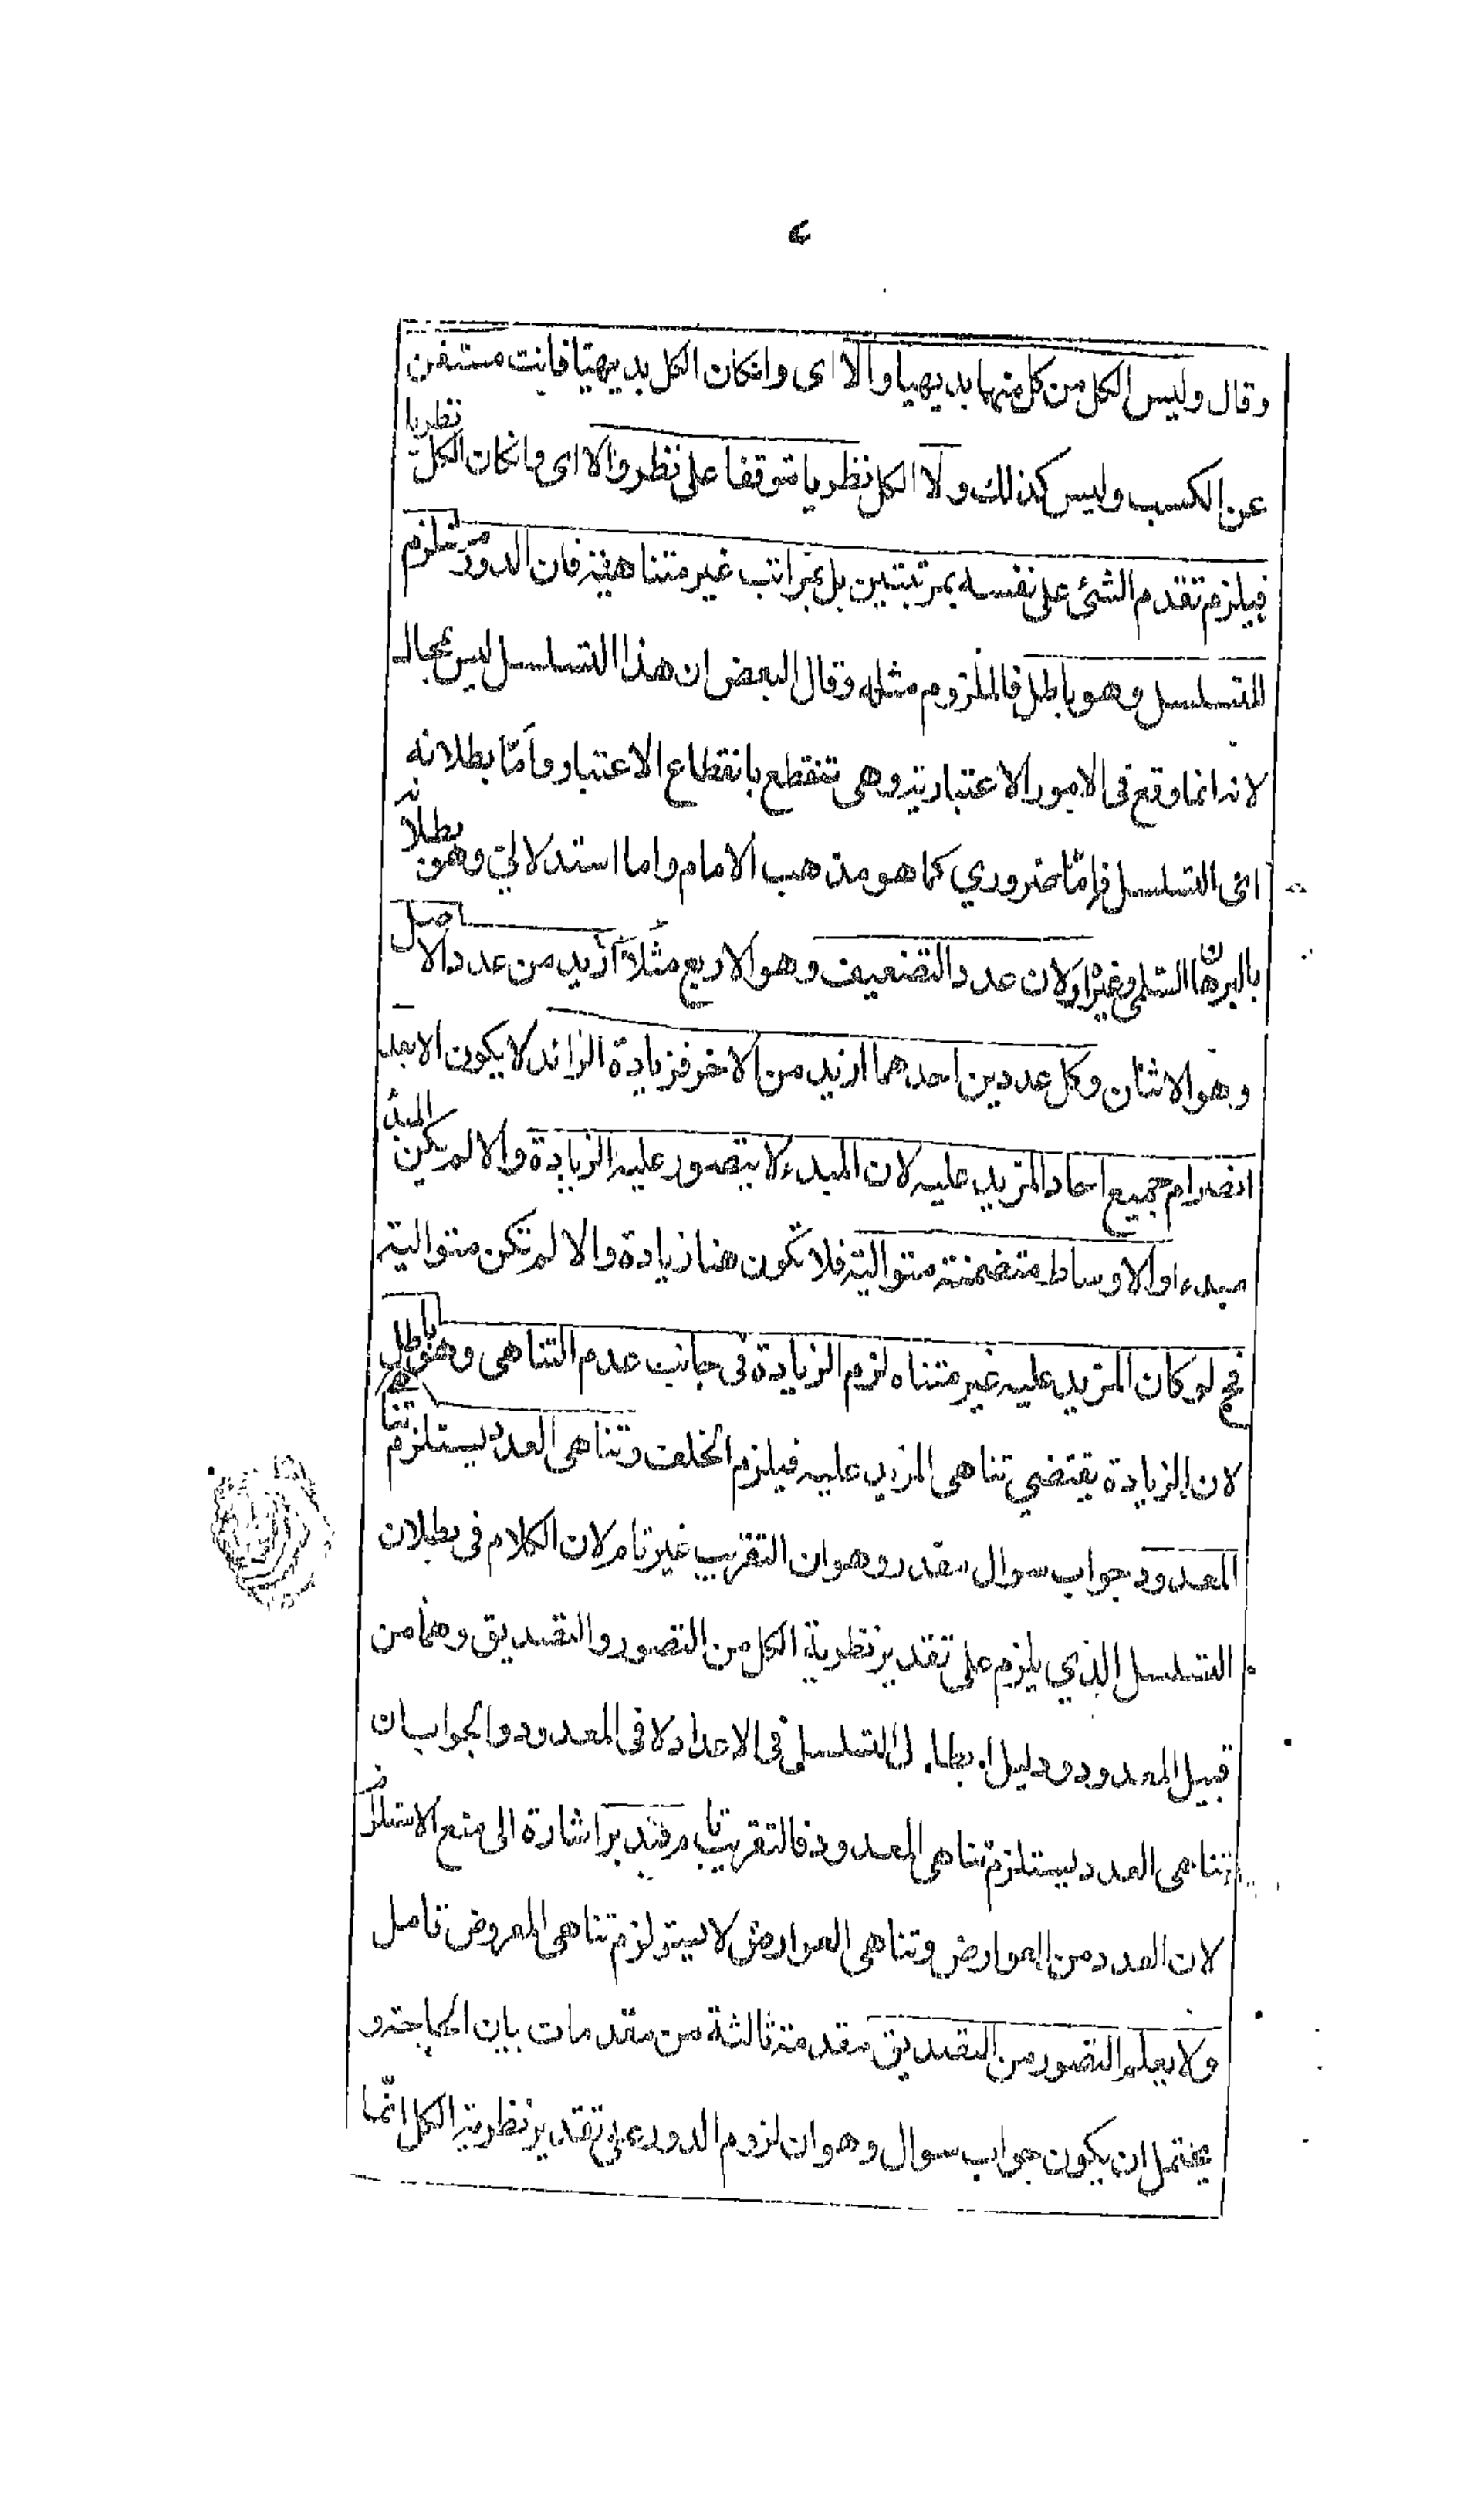 ۴
وقال وليس الكل من كل منهما بديهيا والا اى وانكان الكل بديهيا فانت مستغن
عن الكسب وليس كذلك ولا الكل نظريا متوقفا على نظر والا اى وانكان الكل نظريا
فيلزم تقدم الشئ على نفسه بمرتبتين بل بمراتب غير متناهية فان الدور مستلزم
للتسلسل وهو باطل فالملزوم مثله وقال البعض ان هذا التسلسل ليس بمحال
لانه انما وقع فى الامور الاعتبارية وهى تنقطع بانقطاع الاعتبار وأمّا بطلانه
اى التسلسل فإمّا ضروري كما هو مذهب الامام واما استدلالي وهو بطلانه
بالبرهان السلمى وغيره اولان عدد التضعيف وهو الاربع مثلا أزيد من عدد الاصل
وهو الاثنان وكل عددين احدهما ازيد من الاخر فزيادة الزائد لا يكون الا بعد
انصرام جميع احاد المزيد عليه لان المبدء لا يتصور عليه الزيادة والا لم يكن المبدء
مبدء والاوساط متضمنة متوالية فلا تكون هنا زيادة والا لم تكن متوالية
فح لو كان المزيد عليه غير متناه لزم الزيادة فى جانب عدم التناهى وهو باطل
لان الزيادة يقتضي تناهى المزيد عليه فيلزم الخلف وتناهى العدد يستلزم تناهى
المعدود جواب سوال مقدر وهو ان التقريب غير تام لان الكلام فى بطلان
التسلسل الذي يلزم على تقدير نظرية الكل من التصور والتصديق وهما من
قبيل المعدود ودليل ابطال التسلسل فى الاعداد لا فى المعدود والجواب ان
تناهى العدد يستلزم تناهى المعدود فالتقريب تام فتدبر اشارة الى منع الاستلزام
لان العدد من العوارض وتناهى العوارض لا يستلزم تناهى المعروض تامل
ولا يعلم التصور من التصديق مقدمة ثالثة من مقدمات بيان الحاجة و
يحتمل ان يكون جواب سوال وهو ان لزوم الدور على تقدير نظرية الكل انّما